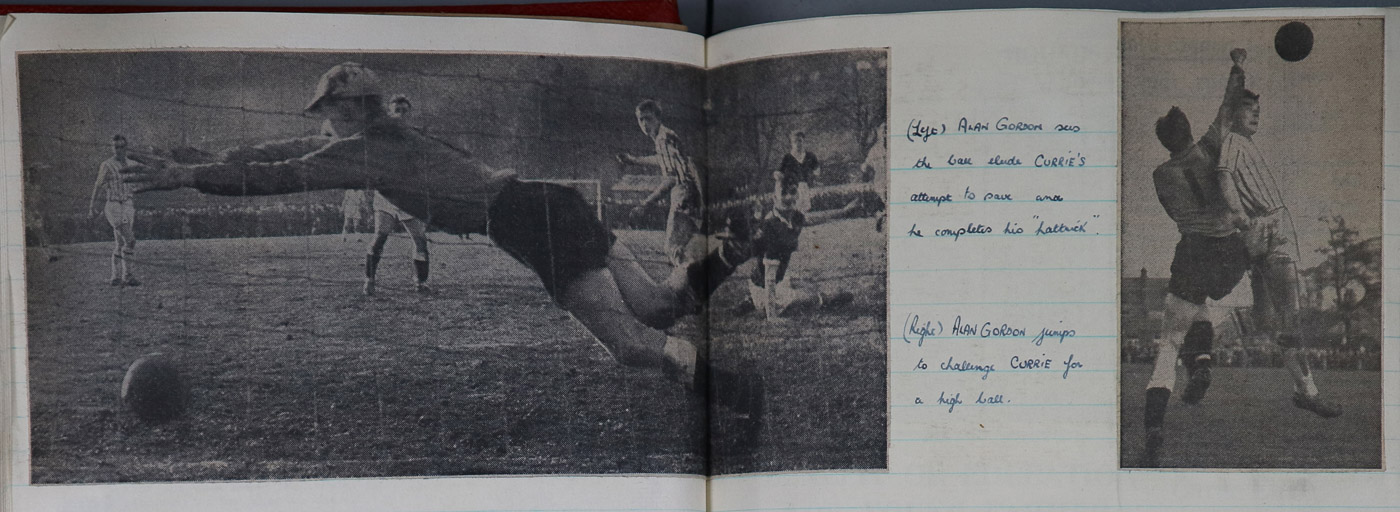 (Left) ALAN GORDON sees
the ball elude CURRIE'S
attempt to save and
he completes his "hattrick".
(Right) ALAN GORDON jumps
to challenge CURRIE for
a high ball.